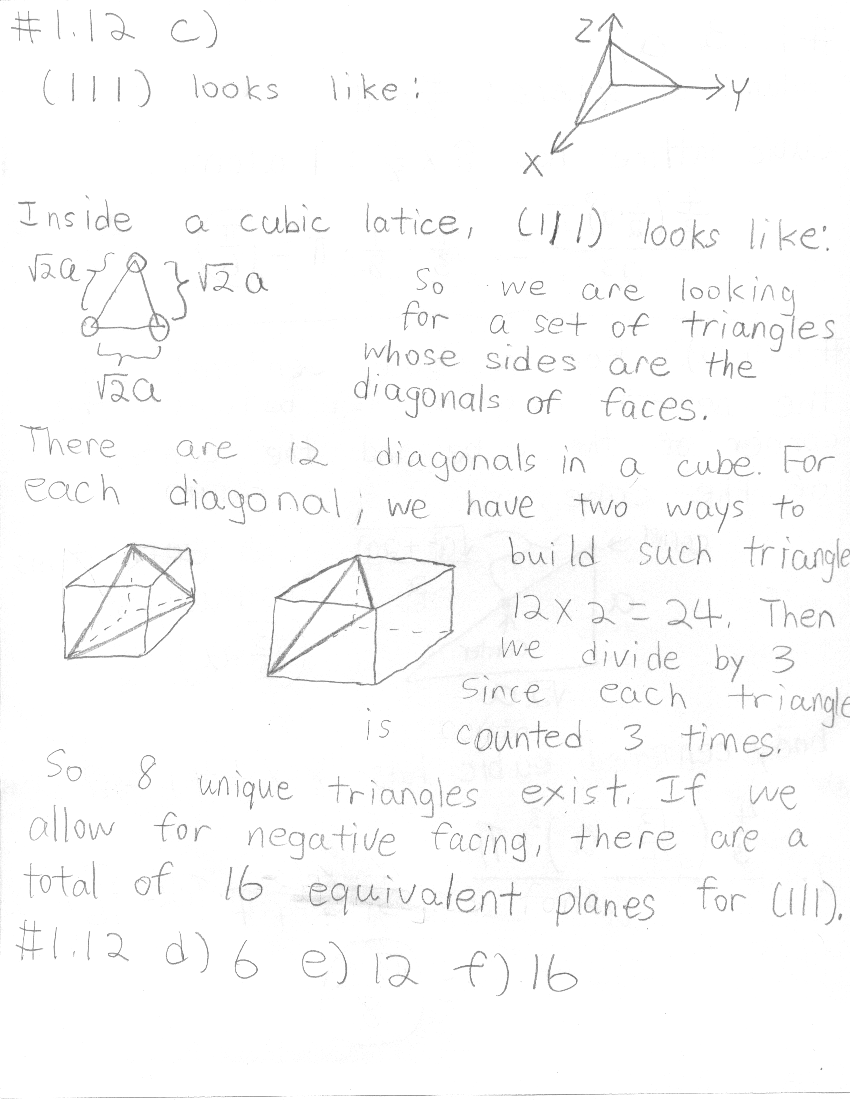 #1.12 c)
(111) looks like:
Z
Y
X
Inside a cubic latice, (111) looks like:
√2a
√2 a
√2a
So we are looking
for a set of triangles
whose sides are the
diagonals of faces.
There are 12 diagonals in a cube. For
each diagonal, we have two ways to
build such triangle
12 x 2 = 24. Then
we divide by 3
since each triangle
is counted 3 times.
So 8 unique triangles exist. If we
allow for negative facing, there are a
total of 16 equivalent planes for (111).
#1.12 d) 6 e) 12 f) 16